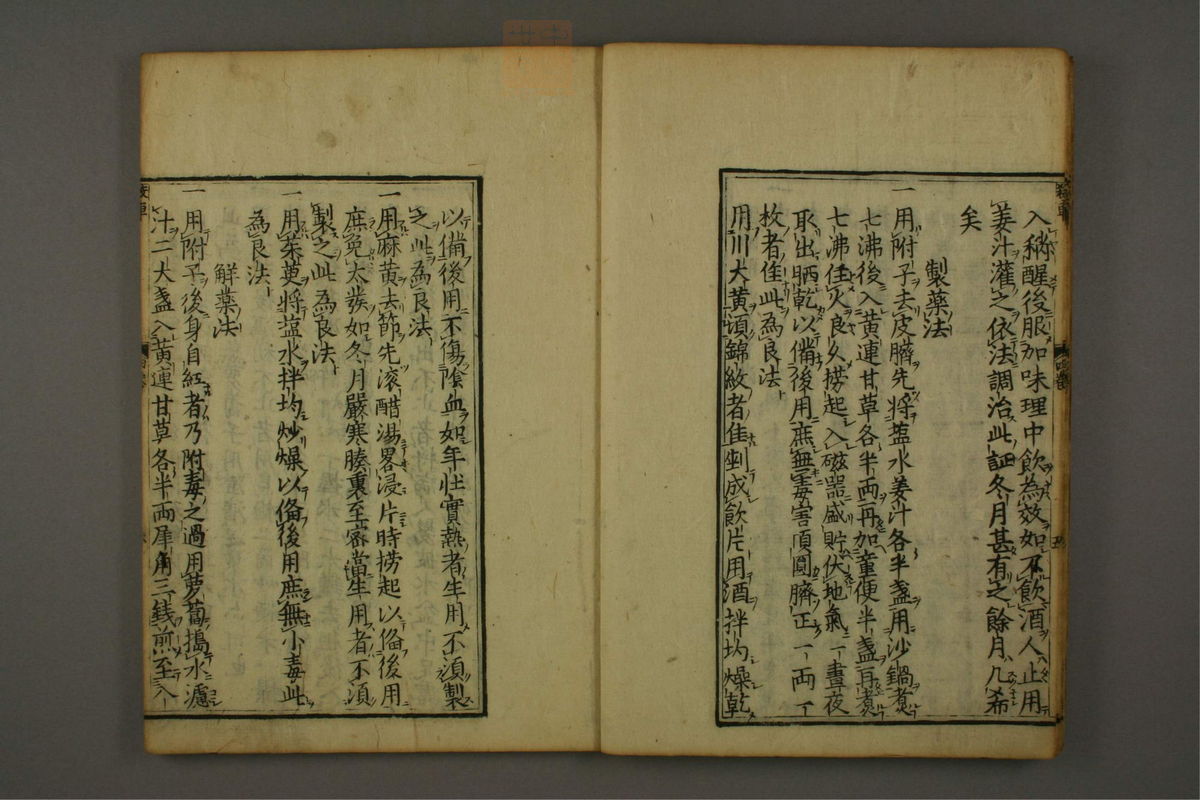 入稍醒後服加味理中飲為效如不飲酒人止用
姜汁灌之依法調治此証冬月甚有之餘月几希
矣
製藥法
一用附子去皮臍先將盐水姜汁各半盞用沙鍋煮
七沸後入黄連甘草各半两再加童便半盞再煮
七沸住火良久撈起入磁器盛貯伏地氣一晝夜
取出晒乾以備後用庶無毒害頂圓臍正一两一
枚者佳此為良法
用川大黄須錦紋者佳剉成飲片用酒拌均燥乾
以備後用不傷陰血如年壮實熱者生用不須製
之此為良法
一用麻黄去節先滚醋湯畧浸片時撈起以俻後用
庶免太發如冬月嚴寒腠裏至密當生用者不須
製之此為良法
一用茱萸將塩水拌均炒燥以俻後用庶無小毒此
為良法
觧藥法
一用附子後身自紅者乃附毒之過用萝蔔搗水濾
汁二大盞入黄連甘草各半两犀角三錢煎至八